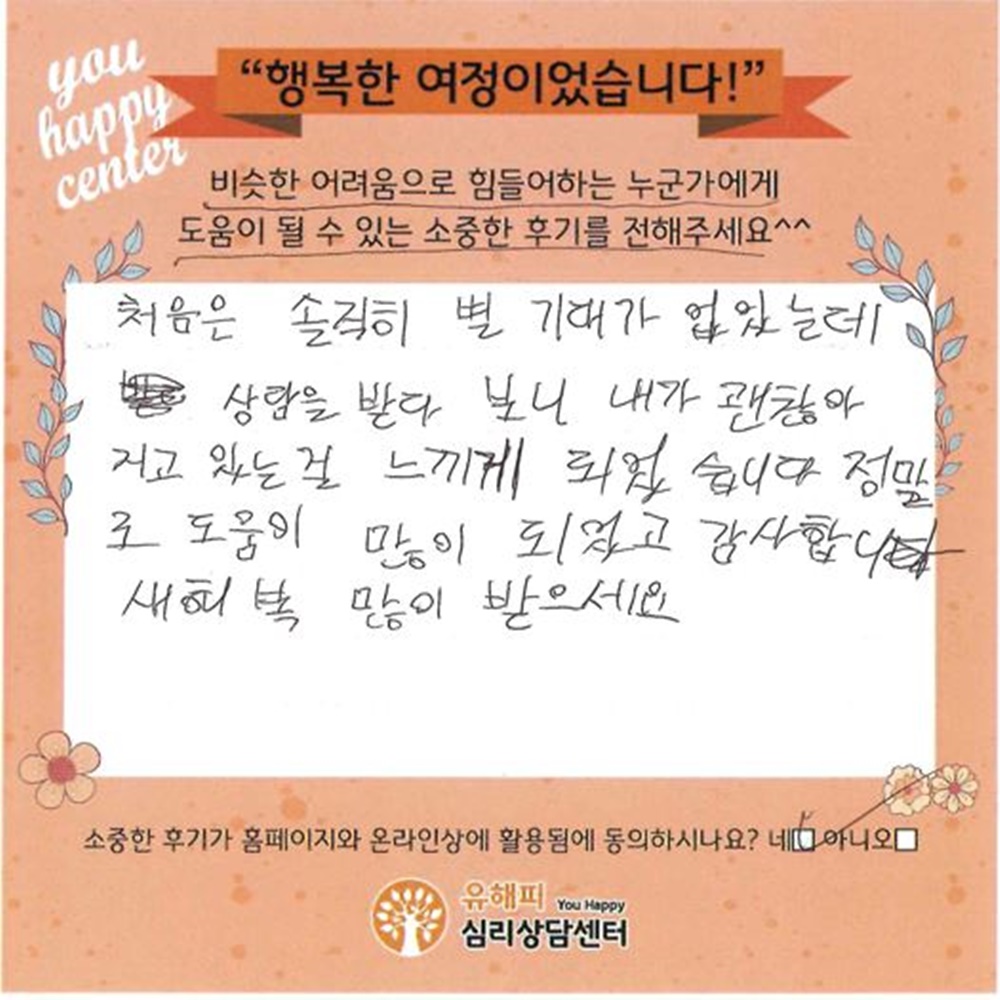 you
happy
center
“행복한 여정이었습니다!”
비슷한 어려움으로 힘들어하는 누군가에게
도움이 될 수 있는 소중한 후기를 전해주세요^^
처음은 솔직히 별 기대가 없었는데
상담을 받다 보니 내가 괜찮아
지고 있는걸 느끼게 되었습니다 정말
로 도움이 많이 되었고 감사합니다
새해 복 많이 받으세요
소중한 후기가 홈페이지와 온라인상에 활용됨에 동의하시나요? 네□ 아니오□
유해피 You Happy
심리상담센터